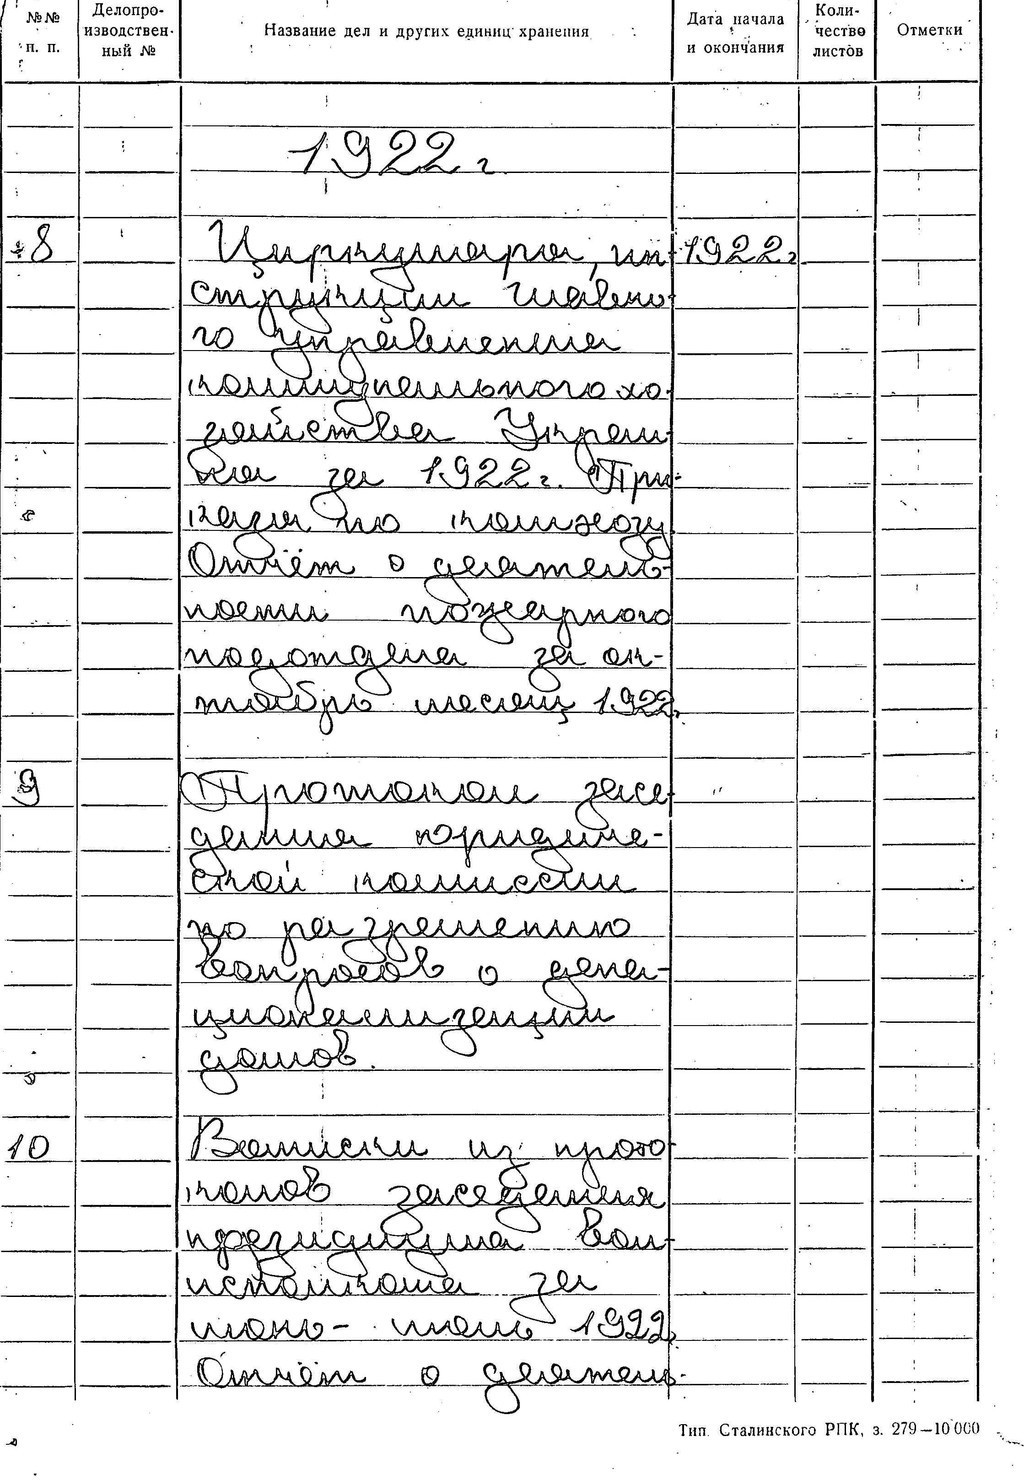 №№ п. п.
Делопроизводственный №
Название дел и других единиц хранения
Дата начала и окончания
Количество листов
Отметки
1922 г
8 Циркуляра, ин- 1922 г
струкции главно-
го управления
коммунального хо-
зяйства Украи-
ны за 1922 г. При-
казы по комхозу
Отчёт о деятель-
ности пожарного
подотдела за ок-
тябрь месяц 1922.
9 Протокол засе- "
дания юридиче-
ской комиссии
по разрешению
вопросов о дена-
ционализации
домов.
10 Выписки из прото-
колов заседания
президиума вол-
исполкома за
июнь- июль 1922.
Отчёт о деятель-
Тип. Сталинского РПК, з. 279—10 000